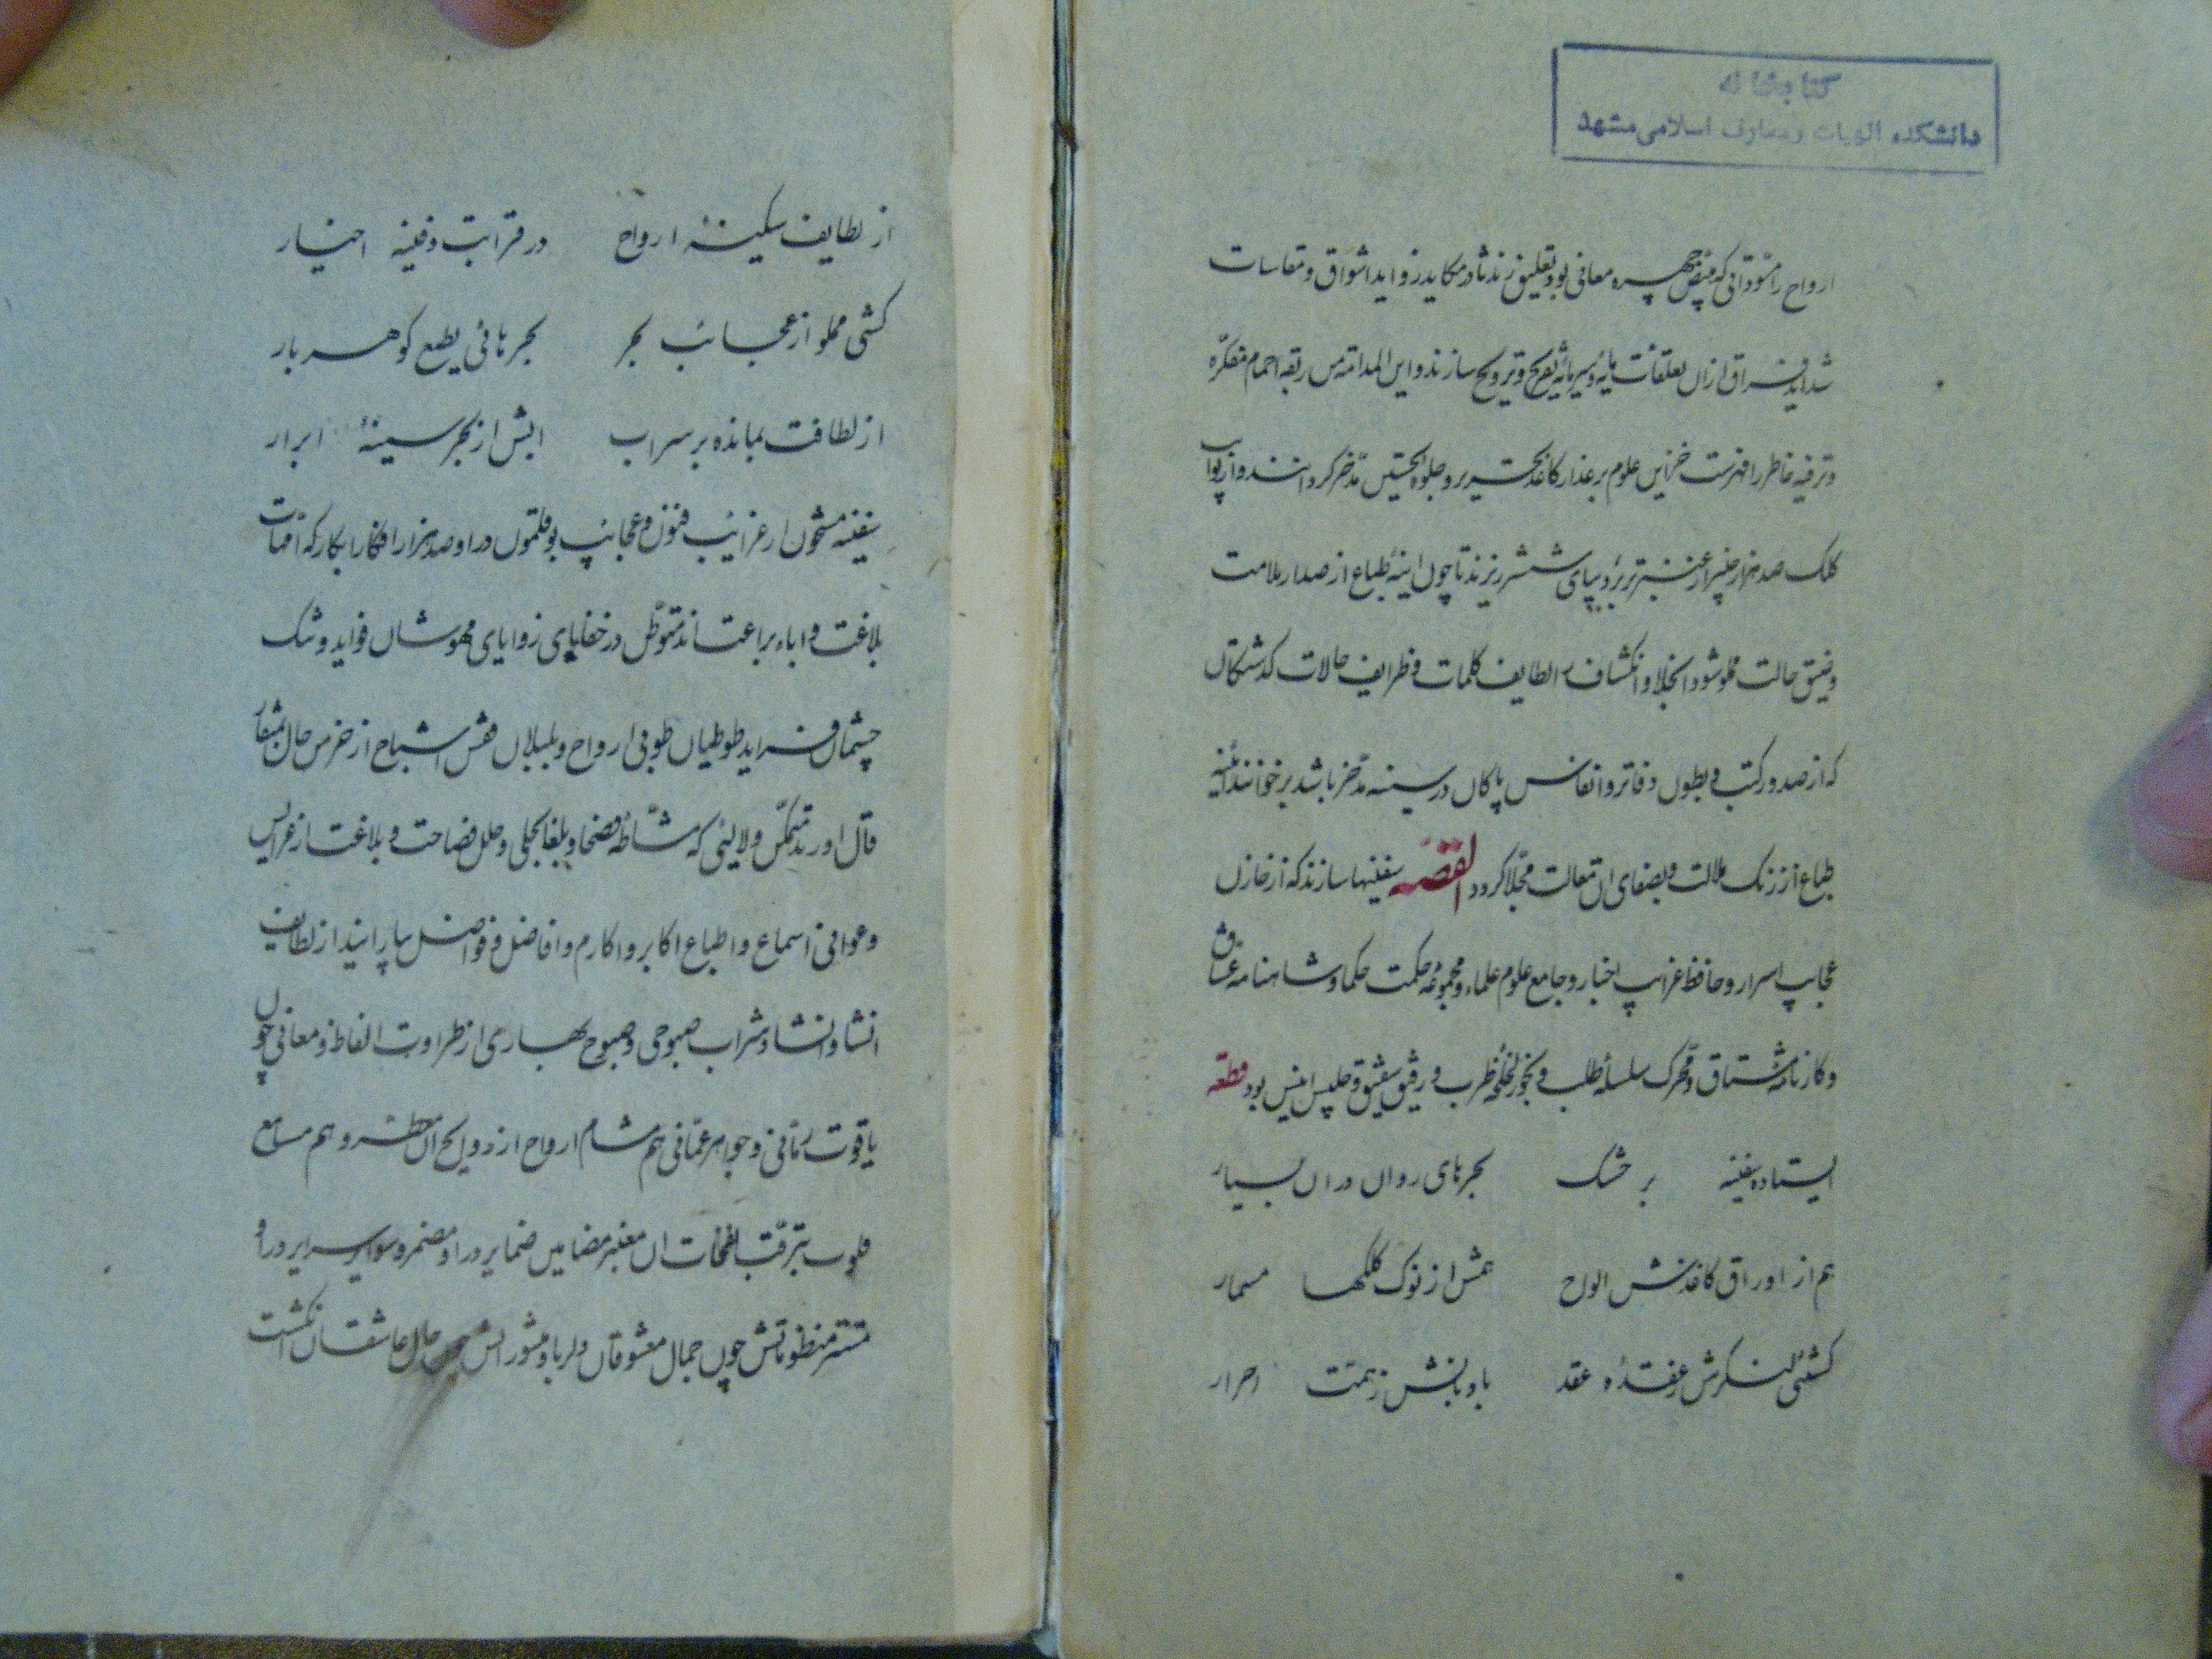 کتابخانه
دانشکده الهیات و معارف اسلامی مشهد
ارواح را مسوداتی که مبیض چهره معانی بود تعلیق زنند تا در مکاید زواید اشواق و مقاسات
شداید فراق ازان تعلقات مایه و سرمایه تفریح و ترویح سازند و این المداقه من ربقه
و ترفیه خاطر را فهرست خزاین علوم بر عذار کاغذ تحریر و جلوه مدخر کردانند و از
کلک صد هزار عنبر تر بر دیبای ششتر ریزند تا چون اینه طباع از صدا ملامت
و ضیق حالت مملو شود انجلا و انکشاف از لطایف کلمات و ظرایف حالات کذشتکان
که از صدور کتب و بطون دفاتر و انفاس پاکان در سینه مدخر باشد بر خوانند اینه
طباع از زنک ملالت و بصفای ان مقالت مجلا کردد القصه سفینها سازند که از خازن
عجایب اسرار و حافظ غرایب اخبار و جامع علوم علماء و مجموعه حکمت حکما و شاهنامه عشاق
و کارنامه مشتاق و محرک سلسله طلب و بخور لخلخه طرب و رفیق شفیق و جلیس انیس بود قطعه
ایستاده سفینه بر خشک بحرهای روان در ان بسیار
هم از اوراق کاغذش الواح همش از نوک کلکها مسمار
کشتئی لنکرش ز عقده عقد بادبانش ز همت احرار
از لطایف سکینهٔ ارواح در قرابت دفینه اخیار
کشتی مملو از عجائب بحر بحر هائی بطبع کوهر بار
از لطافت بمانده بر سراب ابش از بحر سینهٔ ابرار
سفینه مشحون از غرایب فنون و عجایب بوقلمون در او صد هزار افکار ابکار که امهات
بلاغت و اباء براعت اند متوطن در خفایای زوایای مهوشان فواید و تنک
چشمان فراید طوطیان طوبی ارواح و بلبلان قفس اشباح از خرس حال بمنقار
قال اورند متمکن و لالیئی که مشاطه فصحا و بلغا بحلی و حلل فصاحت و بلاغت از عرایس
و عوانی اسماع و اطباع اکابر و اکارم و افاضل و فواضل بیارایند از لطایف
انشا و انشاد شراب صبوحی و صبوح بهاری از طراوت الفاظ و معانی چون
یاقوت رمانی و جواهر عمانی هم مشام ارواح از روایح ان معطر و هم مسامع
قلوب بترقب نفحات ان معنبر مضامین ضمایر در او مضمر و سرایر در او
مستتر منظوماتش چون جمال معشوقان دلربا و منثوراتش چون حال عاشقان انکشت